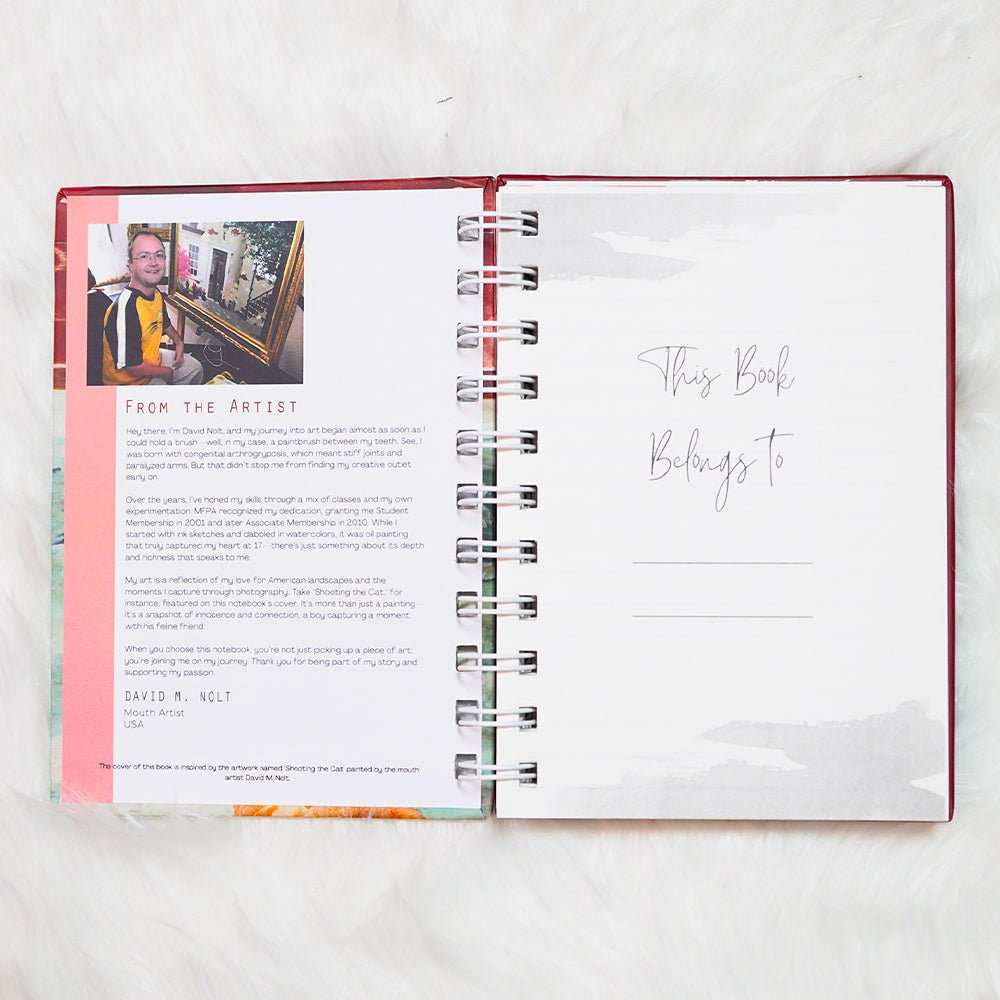 FROM THE ARTIST
Hey there, I'm David Nolt, and my journey into art began almost as soon as I
could hold a brush—well, in my case, a paintbrush between my teeth. See, I
was born with congenital arthrogryposis, which meant stiff joints and
paralyzed arms. But that didn't stop me from finding my creative outlet
early on.
Over the years, I've honed my skills through a mix of classes and my own
experimentation. MFPA recognized my dedication, granting me Student
Membership in 2001 and later Associate Membership in 2010. While I
started with ink sketches and dabbled in watercolors, it was oil painting
that truly captured my heart at 17—there's just something about its depth
and richness that speaks to me.
My art is a reflection of my love for American landscapes and the
moments I capture through photography. Take 'Shooting the Cat,' for
instance, featured on this notebook's cover. It's more than just a painting—
it's a snapshot of innocence and connection, a boy capturing a moment
with his feline friend.
When you choose this notebook, you're not just picking up a piece of art;
you're joining me on my journey. Thank you for being part of my story and
supporting my passion.
DAVID M. NOLT
Mouth Artist
USA
The cover of this book is inspired by the artwork named 'Shooting the Cat' painted by the mouth
artist David M. Nolt.
This Book
Belongs to